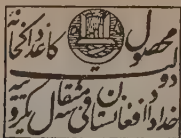 محصول کاغذ داکخانه
دولت
خداداد افغانستان فی مثقال یکروپیه